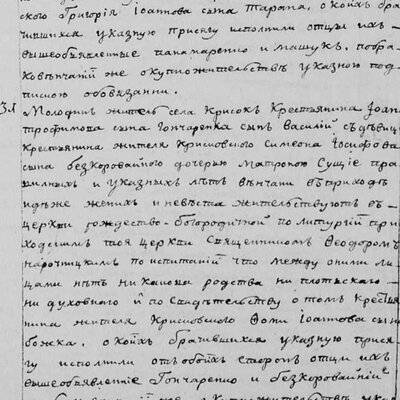 ского Григорїя Іоаннова сына Тарана, о коихъ бра
чившихся указную присягу исполнили отцы ихъ
вышеобъявленные Панамаренко и Машукъ, по бра
ковѣнчанїй же окупножительствѣ указною под
пискою обовязанни.
31 Молодикъ житель села Крисокъ Крестьянина Іоан
Трофимова сына Гончаренка сынъ Василїй съ дѣвице
Крестьянина жителя Крисковского Симеона Іосифова
сына Безкоровайного дочерью Матроною Сущїе пра
вилныхъ и указныхъ лѣтъ вѣнчани въ приходѣ
идѣже женихъ и невѣста жительствуютъ въ
церкви рождество-богородичной по литургїй при
ходскимъ тоя церкви Священникомъ Феодоромъ
нарочницкимъ по испитанїй что между оними ли
цами нѣтъ ни какова родства ни плотскаго
ни духовного и по свидѣтельству о томъ Крестья
нина жителя Крисковского Фоми Іоаннова сына
божка. о коихъ брачившихся указную прися
гу исполнили отъ обоихъ сторонъ отцы ихъ
вышеобъявленнїе Гончаренко и безкоровайнїй